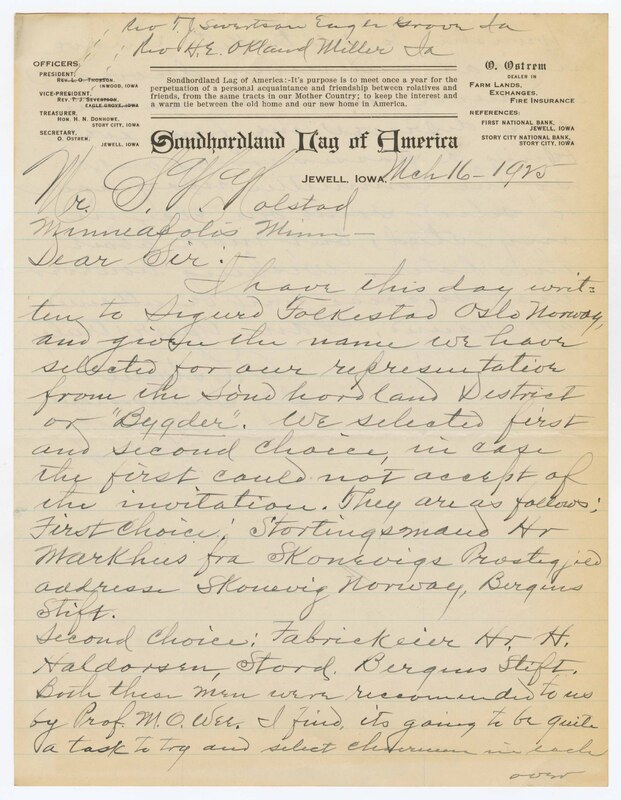 Rev T. J. Severtson Eagle Grove Ia
Rev H. E. Okland Miller Ia
OFFICERS
PRESIDENT,
REV. L. O. THORSON,
INWOOD, IOWA
VICE-PRESIDENT,
REV. T. J. SEVERTSON,
EAGLE GROVE, IOWA
TREASURER,
HON. H. N. DONHOWE,
STORY CITY, IOWA
SECRETARY,
O. OSTREM,
JEWELL, IOWA
Sondhordland Lag of America:-It's purpose is to meet once a year for the
perpetuation of a personal acquaintance and friendship between relatives and
friends, from the same tracts in our Mother Country; to keep the interest and
a warm tie between the old home and our new home in America.
Sondhordland Lag of America
O. Ostrem
DEALER IN
FARM LANDS,
EXCHANGES,
FIRE INSURANCE
REFERENCES:
FIRST NATIONAL BANK,
JEWELL, IOWA
STORY CITY NATIONAL BANK,
STORY CITY, IOWA
JEWELL, IOWA, Mch 16 - 1925
Mr. S. Holstad
Minneapolis Minn -
Dear Sir:
I have this day writ=
ten to Sigurd Folkestad Oslo Norway,
and given the name we have
selected for our representative
from the Söndhordland District
or "Bygder". We selected first
and second choice, in case
the first could not accept of
the invitation. They are as follows:
First choice; Stortingsmand Hr
Markhus fra Skonevigs Prestegjeld
addresse Skonevig Norway, Bergens
Stift.
Second Choice: Fabrickeier Hr. H.
Haldorsen, Stord. Bergens Stift.
Both these men were reccomended to us
by Prof. M. O. Wee. I find, its going to be quite
a task to try and select chairmen in each
over